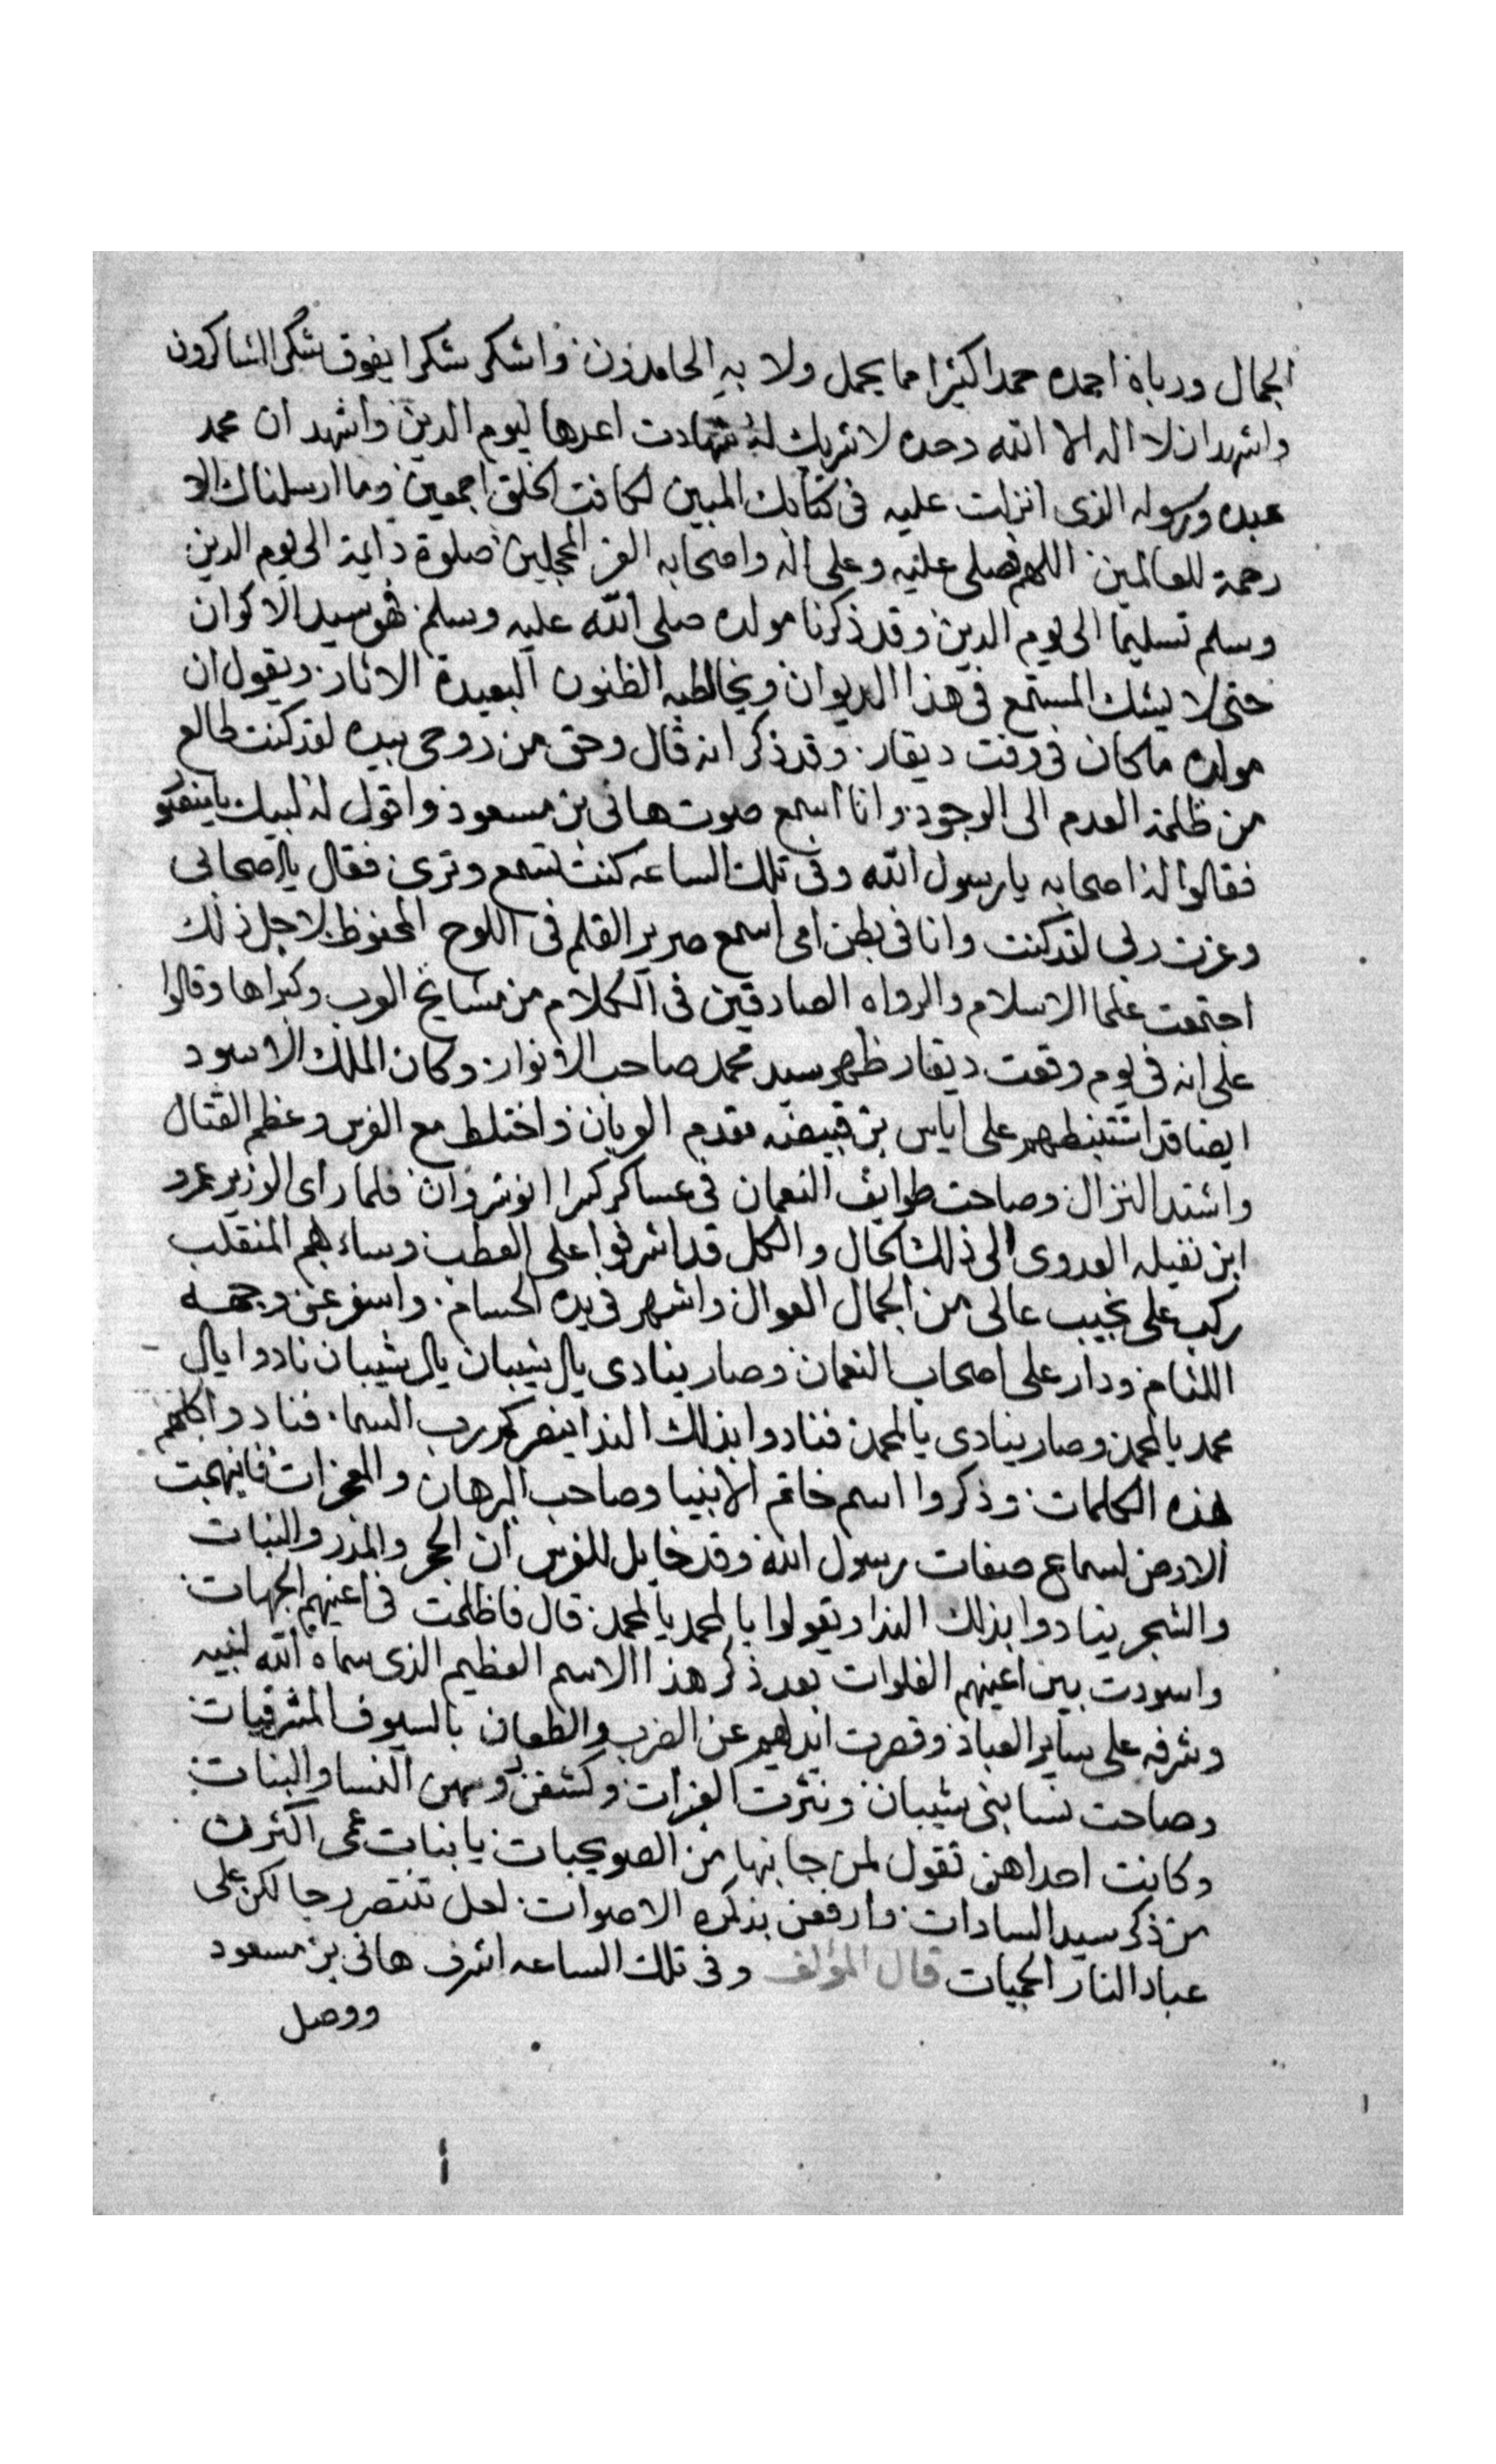 الجمال ورباه احمده حمدا كثيرا مما يحمل ولا به الحامدون واشكر شكرا يفوق شكر الشاكرون
واشهد ان لا اله الا الله وحده لا شريك له شهادت اعدها ليوم الدين واشهد ان محمد
عبده ورسوله الذى انزلت عليه فى كتابك المبين لكافت الخلق اجمعين وما ارسلناك الا
رحمة للعالمين اللهم فصلى عليه وعلى اله واصحابه الغر المحجلين صلوة دايمة الى يوم الدين
وسلم تسليما الى يوم الدين وقد ذكرنا مولده صلى الله عليه وسلم فهو سيد الاكوان
حتى لا يشك المستمع فى هذا الديوان ويخالطبه الظنون البعيدة الاثار ويقول ان
مولده ما كان فى وقت ديقار وقد ذكر انه قال وحق من روحى بيده لقد كنت طالع
من ظلمة العدم الى الوجود وانا اسمع صوت هانى بن مسعود واقول له لبيك
فقالوا له اصحابه يا رسول الله وفى تلك الساعه كنت تسمع وترى فقال يا اصحابى
وعزت ربى لقد كنت وانا فى بطن امى اسمع صرير القلم فى اللوح المحفوظ لاجل ذلك
اجتمعت علما الاسلام والرواه الصادقين فى الكلام من مشايخ العرب وكبراها وقالوا
على انه فى يوم وقعت ديقار ظهر سيد محمد صاحب الانوار وكان الملك الاسود
ايضا قد استظهر على اياس بن قبيضه مقدم العربان واختلط مع الفرس وعظم القتال
واشتد النزال وصاحت طوايف النعمان فى عساكر كسرا انوشروان فلما راى الوزير عمرو
ابن نفيله العدوى الى ذلك الحال والكل قد اشرفوا على العطب وساءهم المنقلب
ركب على نجيب عالى من الجمال العوال واشهر فى يده الحسام واسفر عن وجهه
اللثام ودار على اصحاب النعمان وصار ينادى يال شيبان يال شيبان نادوا يال
محمد يالمحمد وصار ينادى يالمحمد فنادوا بذلك الندا ينصركم رب السما فنادوا كلهم
هذه الكلمات وذكروا اسم خاتم الانبيا وصاحب البرهان والمعجزات فابتهجت
الارض لسماع صفات رسول الله وقد خايل للفرس ان الحجر والمدر والنبات
والشجر ينادوا بذلك الندا ويقولوا يالمحمد يالمحمد قال فاظلمت فى اعينهم الجهات
واسودت بين اعينهم الفلوات بعد ذكر هذا الاسم العظيم الذى سماه الله لنبيه
وشرفه على ساير العباد وقصرت ايديهم عن الضرب والطعان بالسيوف المشرفيات
وصاحت نسا بنى شيبان ونثرت وكشفن روسهن النسا والبنات
وكانت احداهن تقول لمن جانبها من الصويحبات يا بنات عمى اكثرن
من ذكر سيد السادات وارفعن بذكره الاصوات لعل تنتصر رجالكن على
عباد النار قال المؤلف وفى تلك الساعه اشرف هانى بن مسعود
ووصل